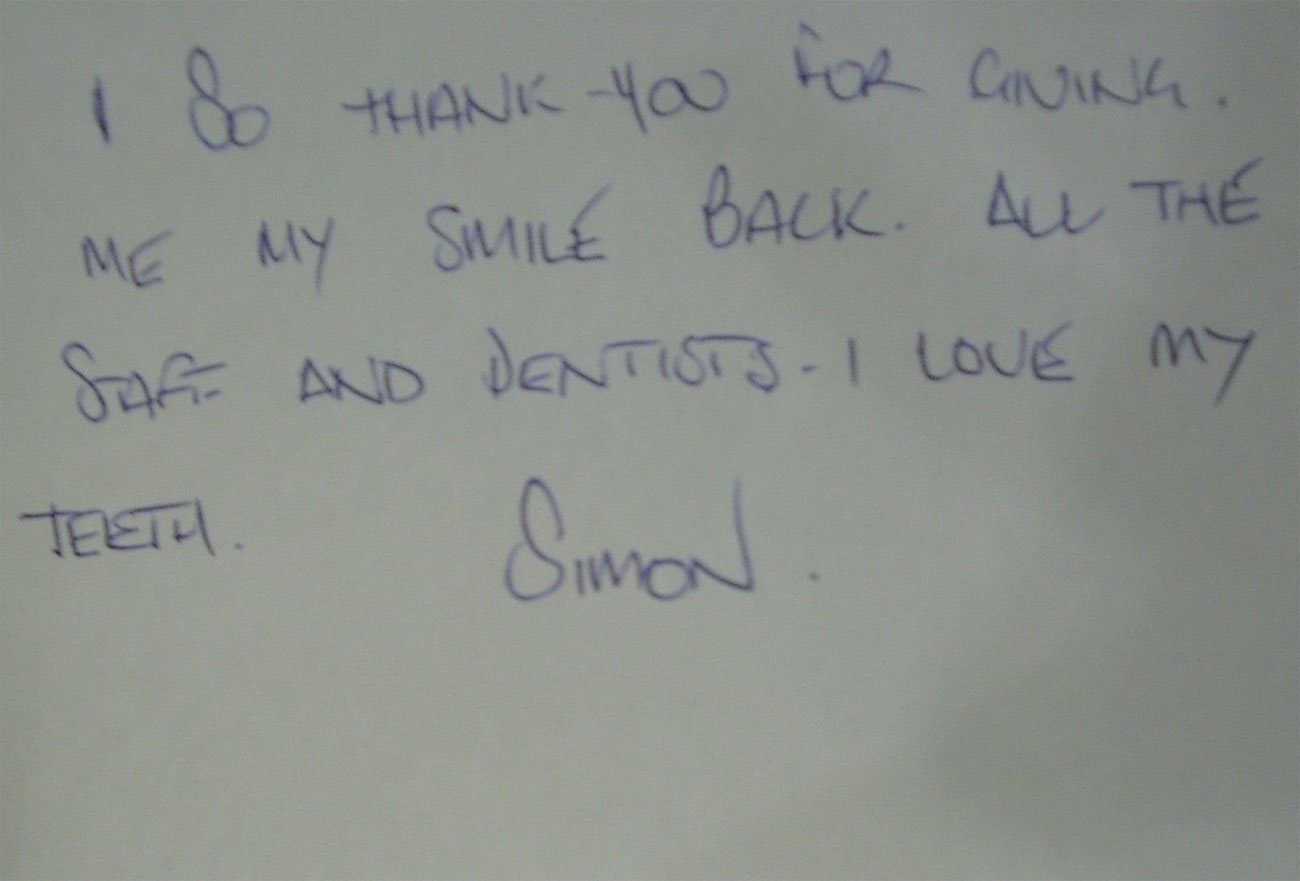 I SO THANK-YOU FOR GIVING.
ME MY SMILE BACK. ALL THE
STAFF AND DENTISTS. I LOVE MY
TEETH.
SIMON.